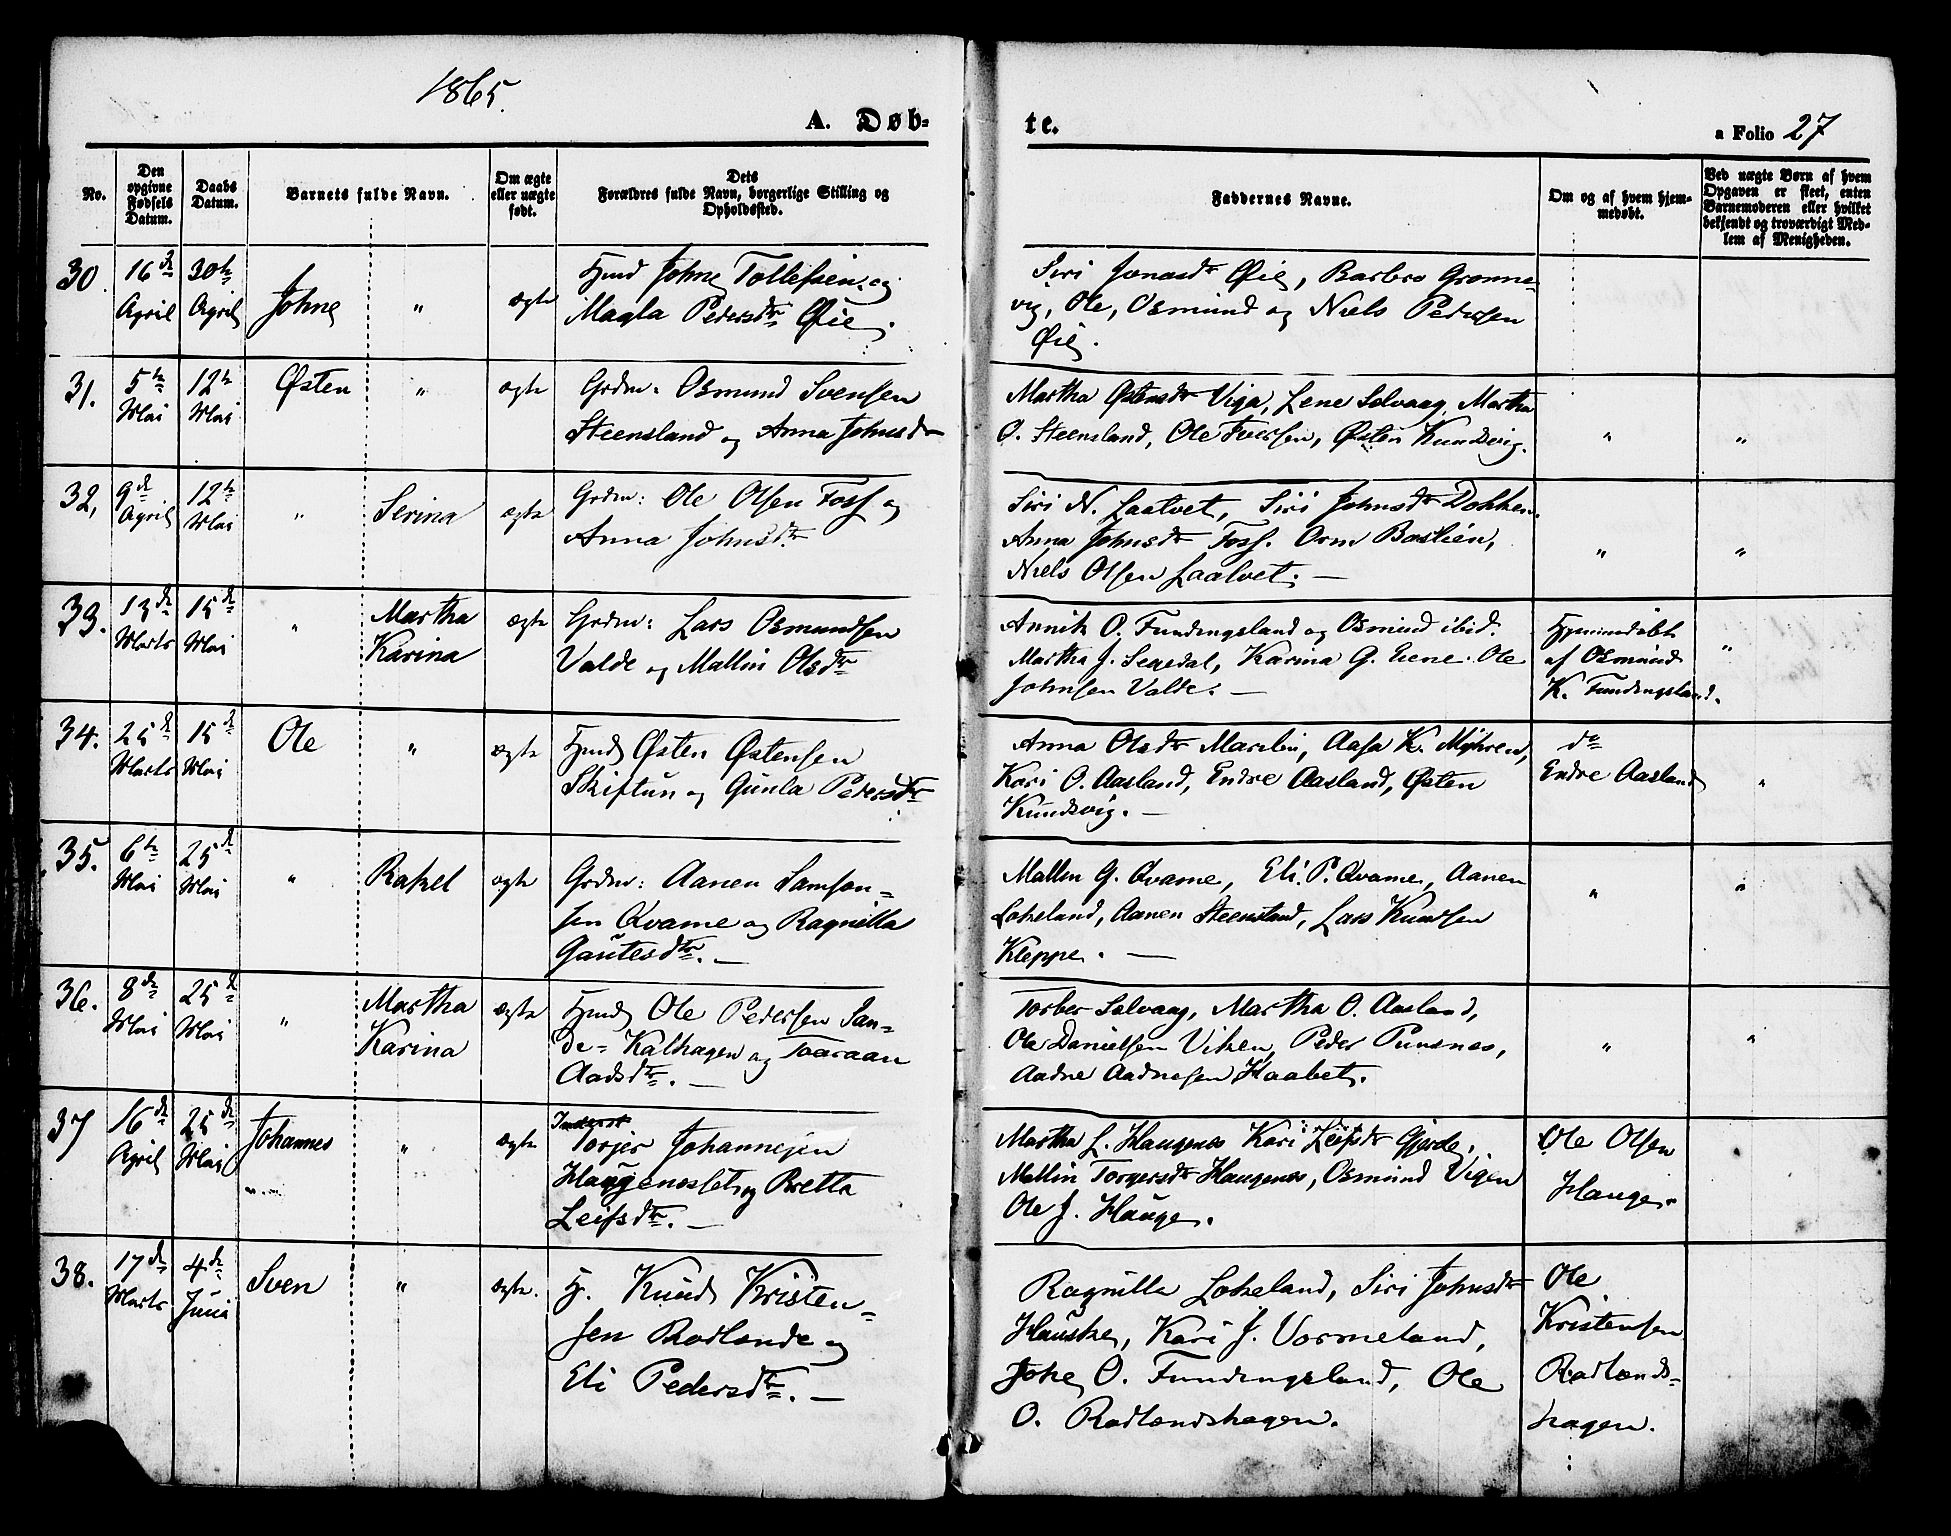 1865.
A. Døb-
te.
a Folio 27
No.
Den
opgivne
Fødsels
Datum.
Daabs
Datum.
Barnets fulde Navn.
Om ægte
eller uægte
født.
Dets
Forældres fulde Navn, borgerlige Stilling og
Opholdssted.
Faddernes Navne.
Om og af hvem hjem-
medøbt.
Ved uægte Børn af hvem
Opgaven er skeet, enten
Barnemoderen eller hvilket
bekjendt og troværdigt Med-
lem af Menigheden.
30 16de April 30te April Johne " ægte
Hmd Johne Tollefsen og
Magla Pedersdtr Øie.
Siri Jonasdtr Øie, Barbro Grønne-
vig, Ole, Osmund og Niels Pedersen
Øie.
31. 5te Mai 12te Mai Østen " ægte
Grdm: Osmund Svensen
Steensland og Anna Johnsdtr
Martha Østensdtr Viga, Lene Solvaag, Martha
O. Steensland, Ole Iversen, Østen Kundsvig. " "
32, 9de April 12te Mai " Serina ægte
Grdm: Ole Olsen Foss og
Anna Johnsdtr.
Siri N. Laalvet, Siri Johnsdtr Dokken.
Anna Johnsdtr Foss. Orm Bastlien,
Niels Olsen Laalvet. — " "
33. 13de Marts 15de Mai " Martha Karina ægte
Grdm: Lars Osmundsen
Valde og Mallin Olsdtr
Annik O. Fundingsland og Osmund ibid.
Martha J. Segedal, Karina G. Eene. Ole
Johnsen Valde. —
Hjemmedøbt
af Osmund
K. Fundingsland. "
34. 25de Marts 15de Mai Ole " ægte
Hmd Østen Østensen
Skiftun og Gunla Pedersdtr
Anna Olsdtr Marvlin, Aasa K. Myhren,
Kari O. Aasland, Endre Aasland, Østen
Kundsvig. —
do
Endre Aasland "
35. 6te Mai 25de Mai " Rakel ægte
Grdm: Aanen Samson-
sen Qvame og Ragnilla
Gautesdtr. —
Mallin G. Qvame, Eli. P. Qvame, Aanen
Lokeland, Aanen Steensland, Lars Knudsen
Kleppe. — " "
36. 8de Mai 25de Mai " Martha Karina ægte
Hmd Ole Pedersen San-
de= Kalhagen og Taaraan
Aadsdtr. —
Torber Solvaag, Martha O. Aasland,
Ole Danielsen Viken, Peder Punsnes,
Aadne Aadnesen Kaabet. " "
37 16de April 25de Mai Johannes " ægte
Inderst
Torjer Johannesen
Haugenesset og Bretta
Leifsdtr. —
Martha L. Haugenes Kari Leifsdtr Gjerde,
Mallin Torgersdtr Haugenes, Osmund Vigen
Ole J. Hauge.
Ole Olsen
Hauge.
38. 17de Marts 4de Juni Sven " ægte.
H. Knud Kristen-
sen Rodlande og
Eli Pedersdtr. —
Ragnilla Lokeland, Siri Johnsdtr
Hauske, Kari J. Vormeland,
Johe O. Fundingsland, Ole
O. Rodlandshagen.
Ole
Kristensen
Rodlands-
hagen.